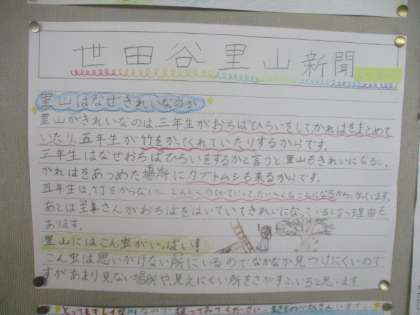 世田谷里山新聞
里山はなぜきれいなのか
里山がきれいなのは、三年生がおちばひろいをして、かれはをまとめて
いたり、五年生が竹をかってくれていたりするからです。
三年生はなぜおちばひろいをするかと言うと里山もきれいになるし、
かれはをあつめた場所にカブトムシも来るからです。
五年生は、竹をからないと
あとは主事さんがおちばをはいていてきれいになっているという理由も
あります。
里山にはこん虫がいっぱい!
こん虫は思いがけない所にいるのでなかなか見つけにくいので
すがあまり見ない場所や、見えにくい所をさがすといると思います。